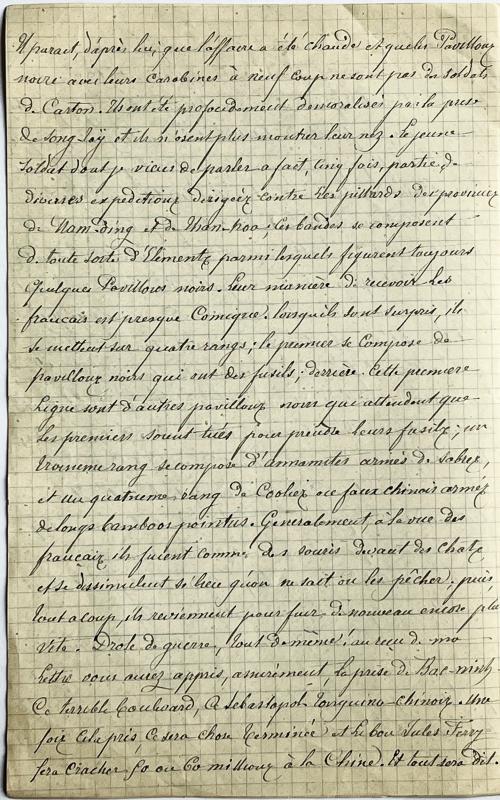 Il parait, d'après lui, que l'affaire a été chaude et que les Pavillons
noirs avec leurs carabines à neuf coup ne sont pas des soldats
de Carton. Ils ont été profondement demoralisés par la prise
de Song-Taÿ et ils n'osent plus montrer leur nez. Le jeune
soldat dont je viens de parler a fait, cinq fois, partie, de
diverses expeditions dirigées contre les pillards des provinces
de Nam-Ding et de Nhan-hoa; ces bandes se composent
de toute sorte d'Eléments parmi lesquels figurent toujours
quelques Pavillons noirs. Leur manière de recevoir les
francais est presque Comique. lorsqu'ils sont surpris, ils
se mettent sur quatre rangs; le premier se compose de
pavillons noirs qui ont des fusils; derrière cette premiere
ligne sont d'autres pavillons noirs qui attendent que
les premiers soient tués pour prendre leurs fusils; un
troisieme rang se compose d'annamites armés de sabres,
et un quatrieme rang de Coolies ou faux chinois armés
de longs bamboos pointus. Generalement, à la vue des
francais, ils fuient comme des souris devant des chats
et se dissimulent si bien qu'on ne sait où les pêcher. puis,
tout a coup, ils reviennent pour fuir de nouveau encore plus
vite. Drole de guerre, tout de même! au reçu de ma
lettre vous aurez appris, assurément, la prise de Bac-ninh
Ce terrible boulevard, Ce Sebastopol tonquino-chinois. Une
fois cela pris, ce sera chose terminée et le bon Jules Ferry
fera cracher 50 ou 60 millions à la Chine. Et tout sera dit.